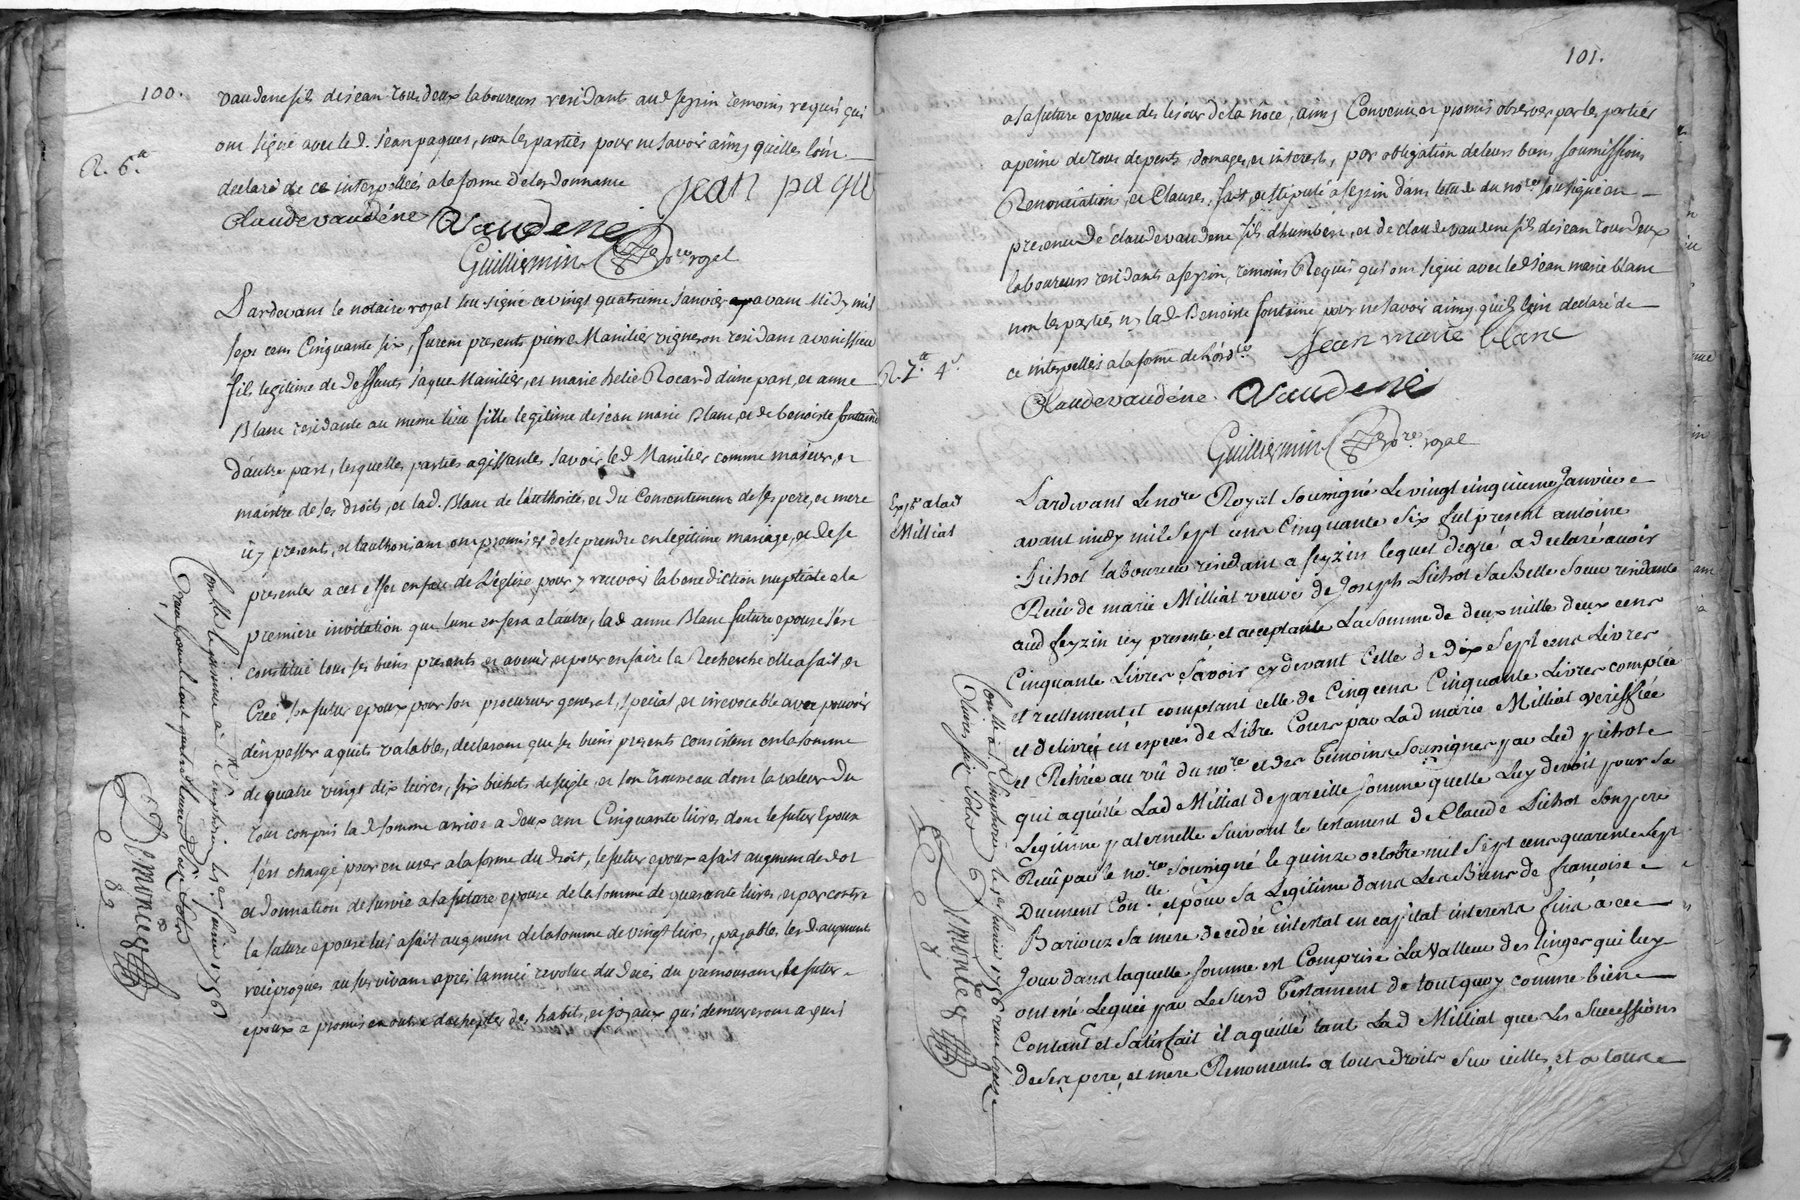 100.
vaudene fils de jean tous deux laboureurs residants aud feyzin temoins requis qui
R. 6.tt
ont signé avec led. Jean paques, non les parties pour ne savoir ainsy quelles l'on
declaré de ce interpelleés a la forme de lordonnance Jean paque
Claude vaudéne Vaudene
Guilliermin Nre royal
Pardevant le notaire royal sou signé ce vingt quatrieme Janvier avant Midy mil
sept cens Cinquante six, furent presents pierre Manilier vigneron residant a venissieu
fils legitime de deffunts Jaque Manilier, et marie helie Rocard d'une part, et anne
Blanc residante au meme lieu fille legitime de jean marie Blanc, et de benoiste fontaine
d'autre part, lesquelles parties agissantes savoir led Manilier comme majeur, et
maistre de ses droits, et lad. Blanc de l'authorité, et du Consentement de ses pere, et mere
icy present, et lauthorisant ont promis de se prendre en legitime mariage, et de se
presenter a cet effet en face de L'eglize pour y recevoir la benediction nuptiale a la
premiere invitation que lune en fera a l'autre, lad anne Blanc future epouse s'est
constitué tous ses biens presents et avenir, et pour en faire la Recherche elle a fait, et
Créé son futur epoux pour son procureur general, special, et irrevocable avec pouvoir
d'en passer aquits valables, declarant que ses biens presents consistent en la somme
de quatre vingt dix livres, six bichets de seigle, et son trousseau dont la valeur du
tout compris la d somme arrive a deux cent Cinquante livres dont le futur Epoux
s'est chargé pour en user a la forme du droit, le futur epoux a fait augment de dot
et donnation de survie a la future epouse de la somme de quarante livres, et par contre
la future epouse lui a fait augment de la somme de vingt livres, payable lesd augment
réciproques au survivant après lannée revolue du deces du premourant, le futur
epoux a promis en outre d'acheptes des habits, et joyaux qui demeureront aquis
Conllé le grosse à St Simphorien le fevrier 1756
101.
a la future epouse des lejour de la nôce, ainsy Convenu et promis observer par les parties
a peine de tous depents, domages, et interests, par obligation de leurs biens, soumissions
Renonciation, et Clauses, fait, et stipulé a feyzin dans letude du nore sousigné en
presence de claude vaudene fils d'humbert, et de claude vaudene fils de jean tous deux
laboureurs residants a feyzin, temoins Requis qui ont signé avec led jean marie blanc
non les parties ny lad Benoiste fontaine pour ne savoir ainsy qu'ils l'on declaré de
R. 7.tt 4.s
ce interpellés a la forme de l'ord.ce Jean marie blanc
Claude vaudéne. Vaudene
Guilliermin Nre royal
Expé a lad
Milliat
Pardevant Le nore Royal Sousigné Le vingt cinquieme Janvier
avant midy mil Sept cens Cinquante Six fut present antoine
Pichot laboureur residant a feyzin lequel de gré a declaré avoir
Receû de marie Milliat veuve de Joseph Pichot Sa Belle Soeur residante
aud feyzin icy presente, et acceptante La Somme de deux mille deux cens
Cinquante Livres Sçavoir cy devant Celle de Dix Sept cens Livres
et reellement et comptant celle de Cinq cens Cinquante Livres comptée
et delivrée en espece de Libre Cours par Lad marie Milliat veriffiée
et Retirée au vû du nore et des Temoins Sousignes par Led pichot
qui a quitté Lad Milliat de pareille Somme quelle Luy devoit pour Sa
Legitime paternelle suivant le testament de Claude Pichot Son pere
Receû par le nore Sousigné le quinze octobre mil Sept cens quarente Sept
Dument Con.llé et pour Sa Legitime dans Les Biens de françoise
Barioz Sa mere decedée intestat en capital interests fins a ce
Jour dans laquelle Somme est Comprise La Valleur des linges qui luy
ont esté Legués par Le Susd Testament de tout quoy comme bien
Contant et Satisfait il a quitté tant Lad Milliat que Les Successions
de Ses pere, et mere Renoncant a tous droits Sur icelles, et a toute
Conllé à St Simphorien le fevrier 1756